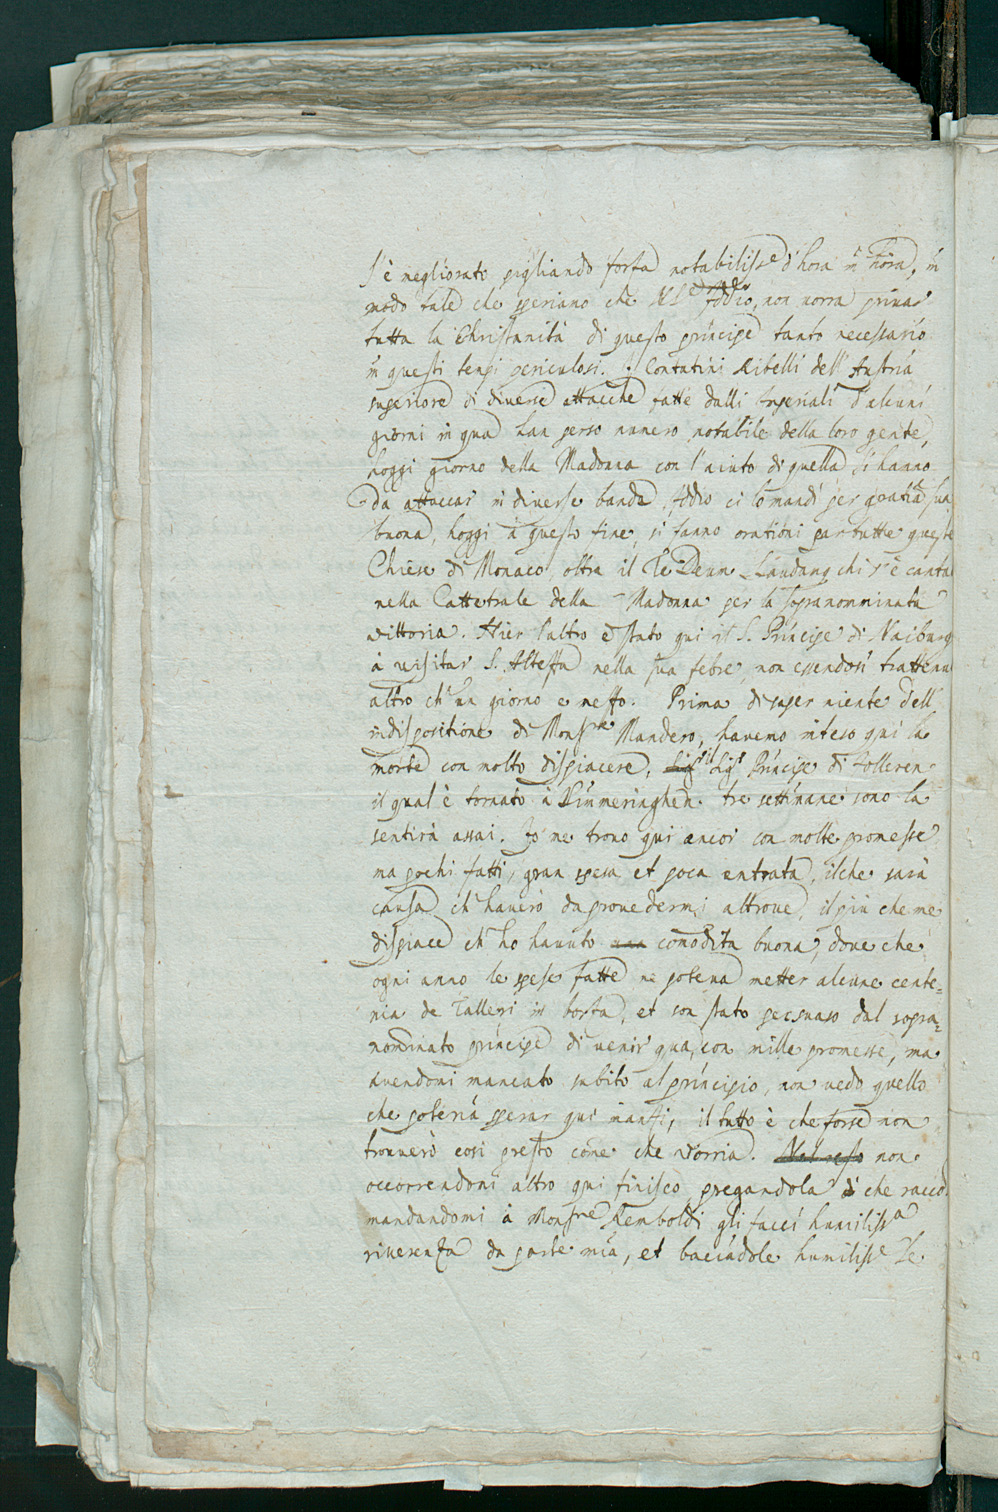 s'è megliorato pigliando forza notabiliss.e d'hora in hora, in
modo tale che speriamo che N.S.re Iddio, non vorra privar
tutta la Christanità di questo principe tanto necessario
in questi tempi periculosi. I Contatini Ribelli dell' Austria
superiore di diverse attacche fatte dalli Imperiali d'alcuni
giorni in qua han perso numero notabile della loro gente,
hoggi giorno della Madonna con l'aiuto di quella si hanno
da attaccar in diverse bande, Iddio ci lo mandi per gratia sua
buona, hoggi à questo fine, si fanno orationi par tutte queste
Chiese di Monaco, oltra il Te Deum Laudamus chi s'è canta
nella Cattetrale della Madonna per la sopranomminata
vittoria. Hier l'altro è stato qui il S. Principe di Naiburg
à visitar S. Altezza nella sua febre, non essendosi trattenu
altro ch' un giorno e mezzo. Prima di saper niente dell'
indispositione di Mons.re Mandero, havemo inteso qui la
morte con molto dispiacere, il Sig.r Principe di Zolleren
il qual è tornato à Simmeringhen tre settimane sono la
sentirà assai. Io me trovo qui ancor con molte promesse
ma pochi fatti, gran spesa et poca entrata, ilche sarà
causa ch' haverò da provedermi altrove, il più che me
dispiace ch' ho havuto comodita buona, dove che
ogni anno le spese fatte ne poteva metter alcune cente=
nia de Talleri in borsa, et son stato persuaso dal sopra=
nominato principe di venir qua, con mille promesse, ma
avendomi mancato subito al principio, non vedo quello
che poteria sperar qui inanzi, il tutto è che forse non
trouverò cosi presto come che vorria. Nel resto non
occorrendomi altro qui finisco pregandola che racco
mandandomi à Mons.re Remboldi gli facci humiliss.a
riverenza da parte mia, et baciandole humiliss.e le